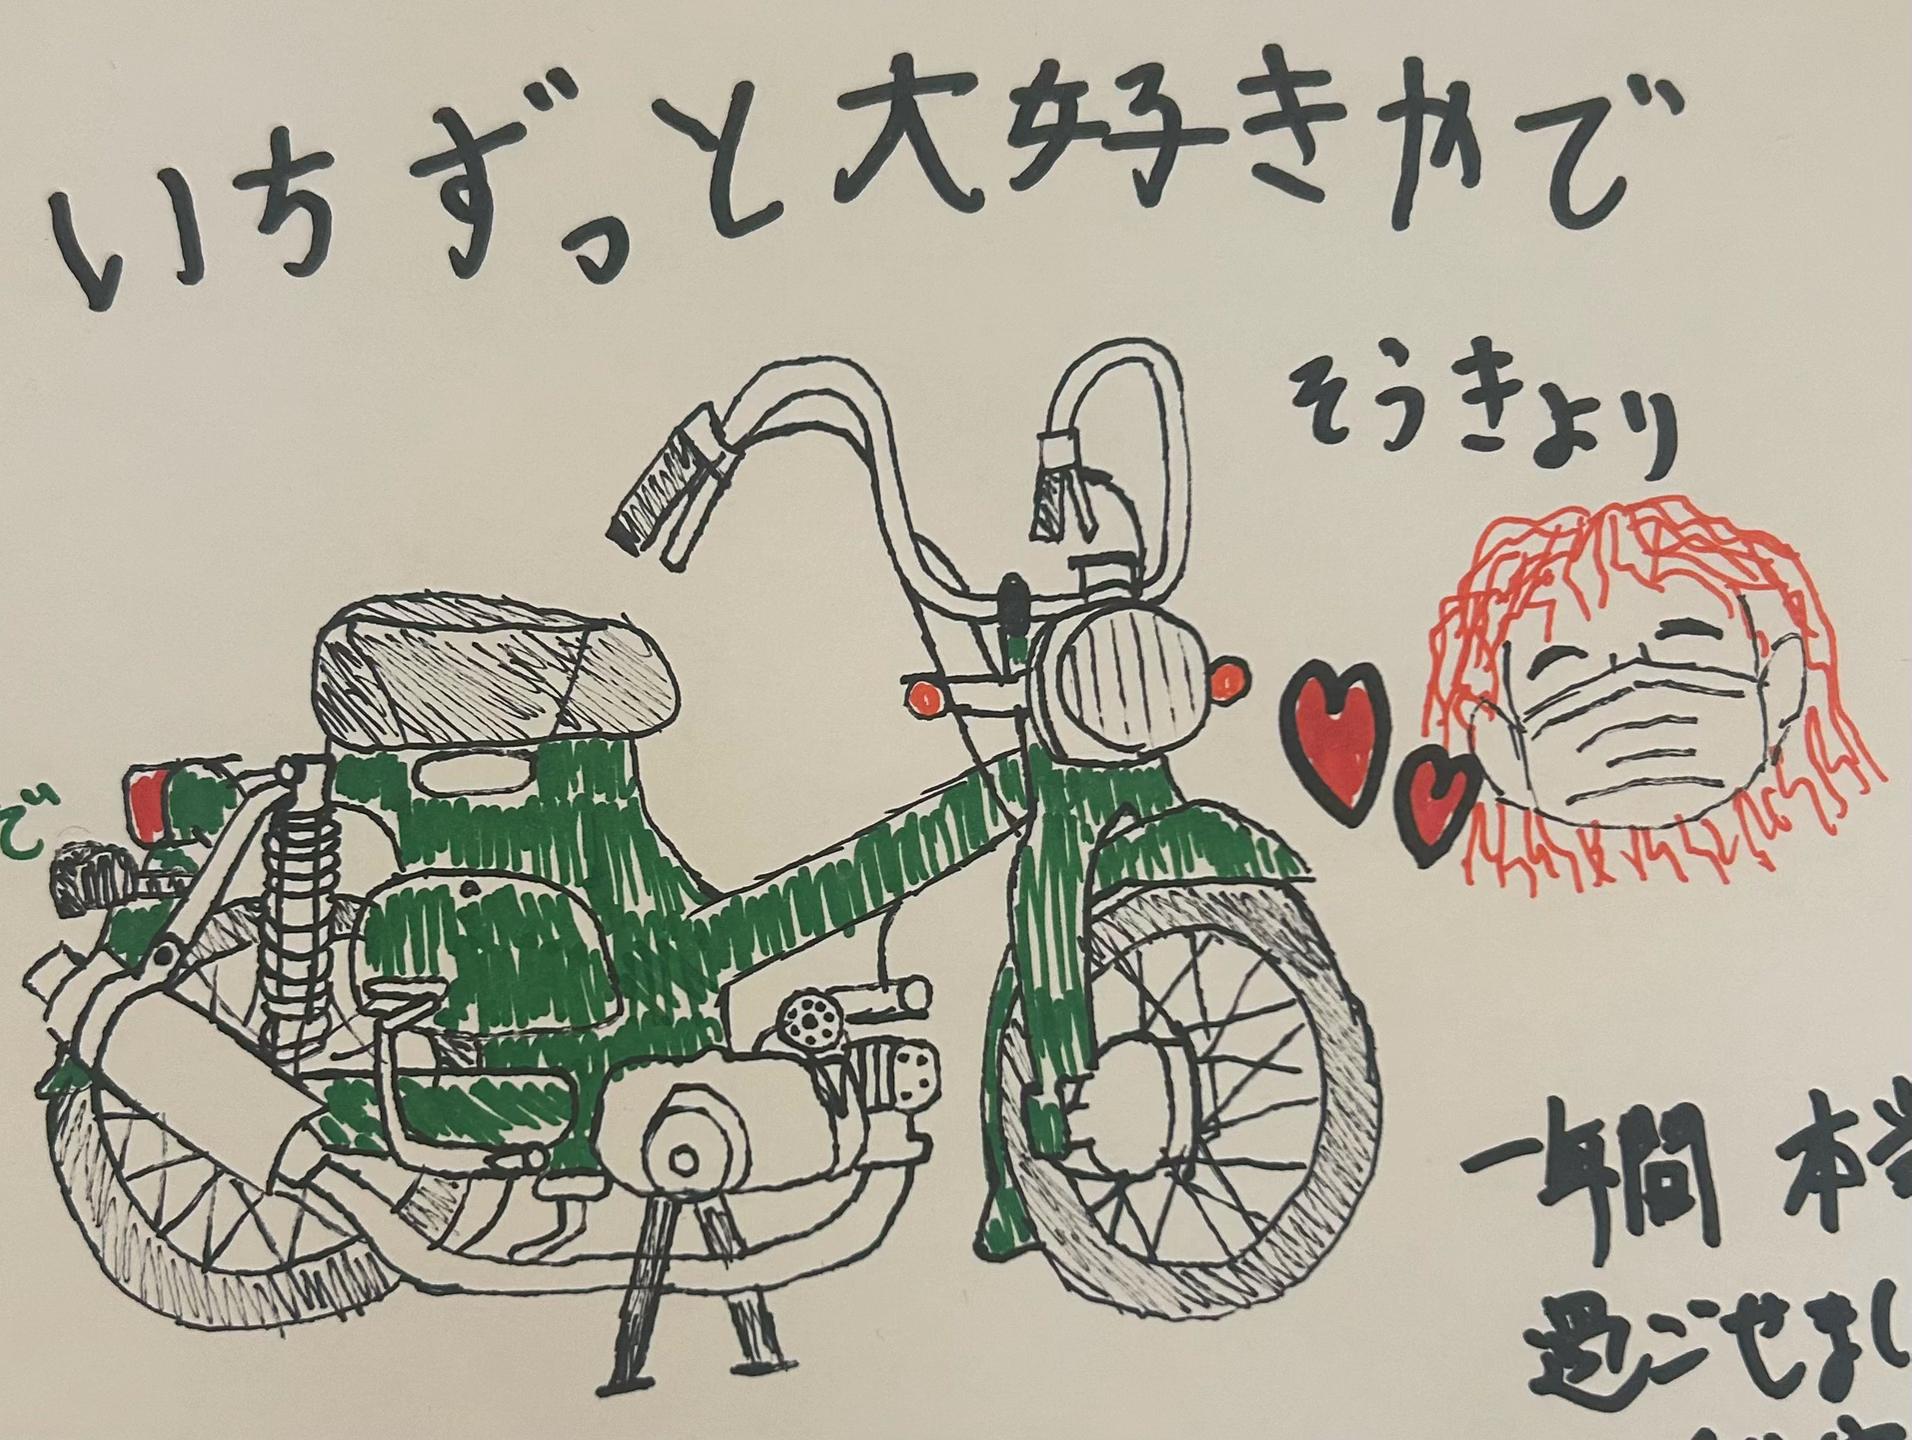 いちずっと大好きやで
そうきより
で
一年間 本当
過ごせまし